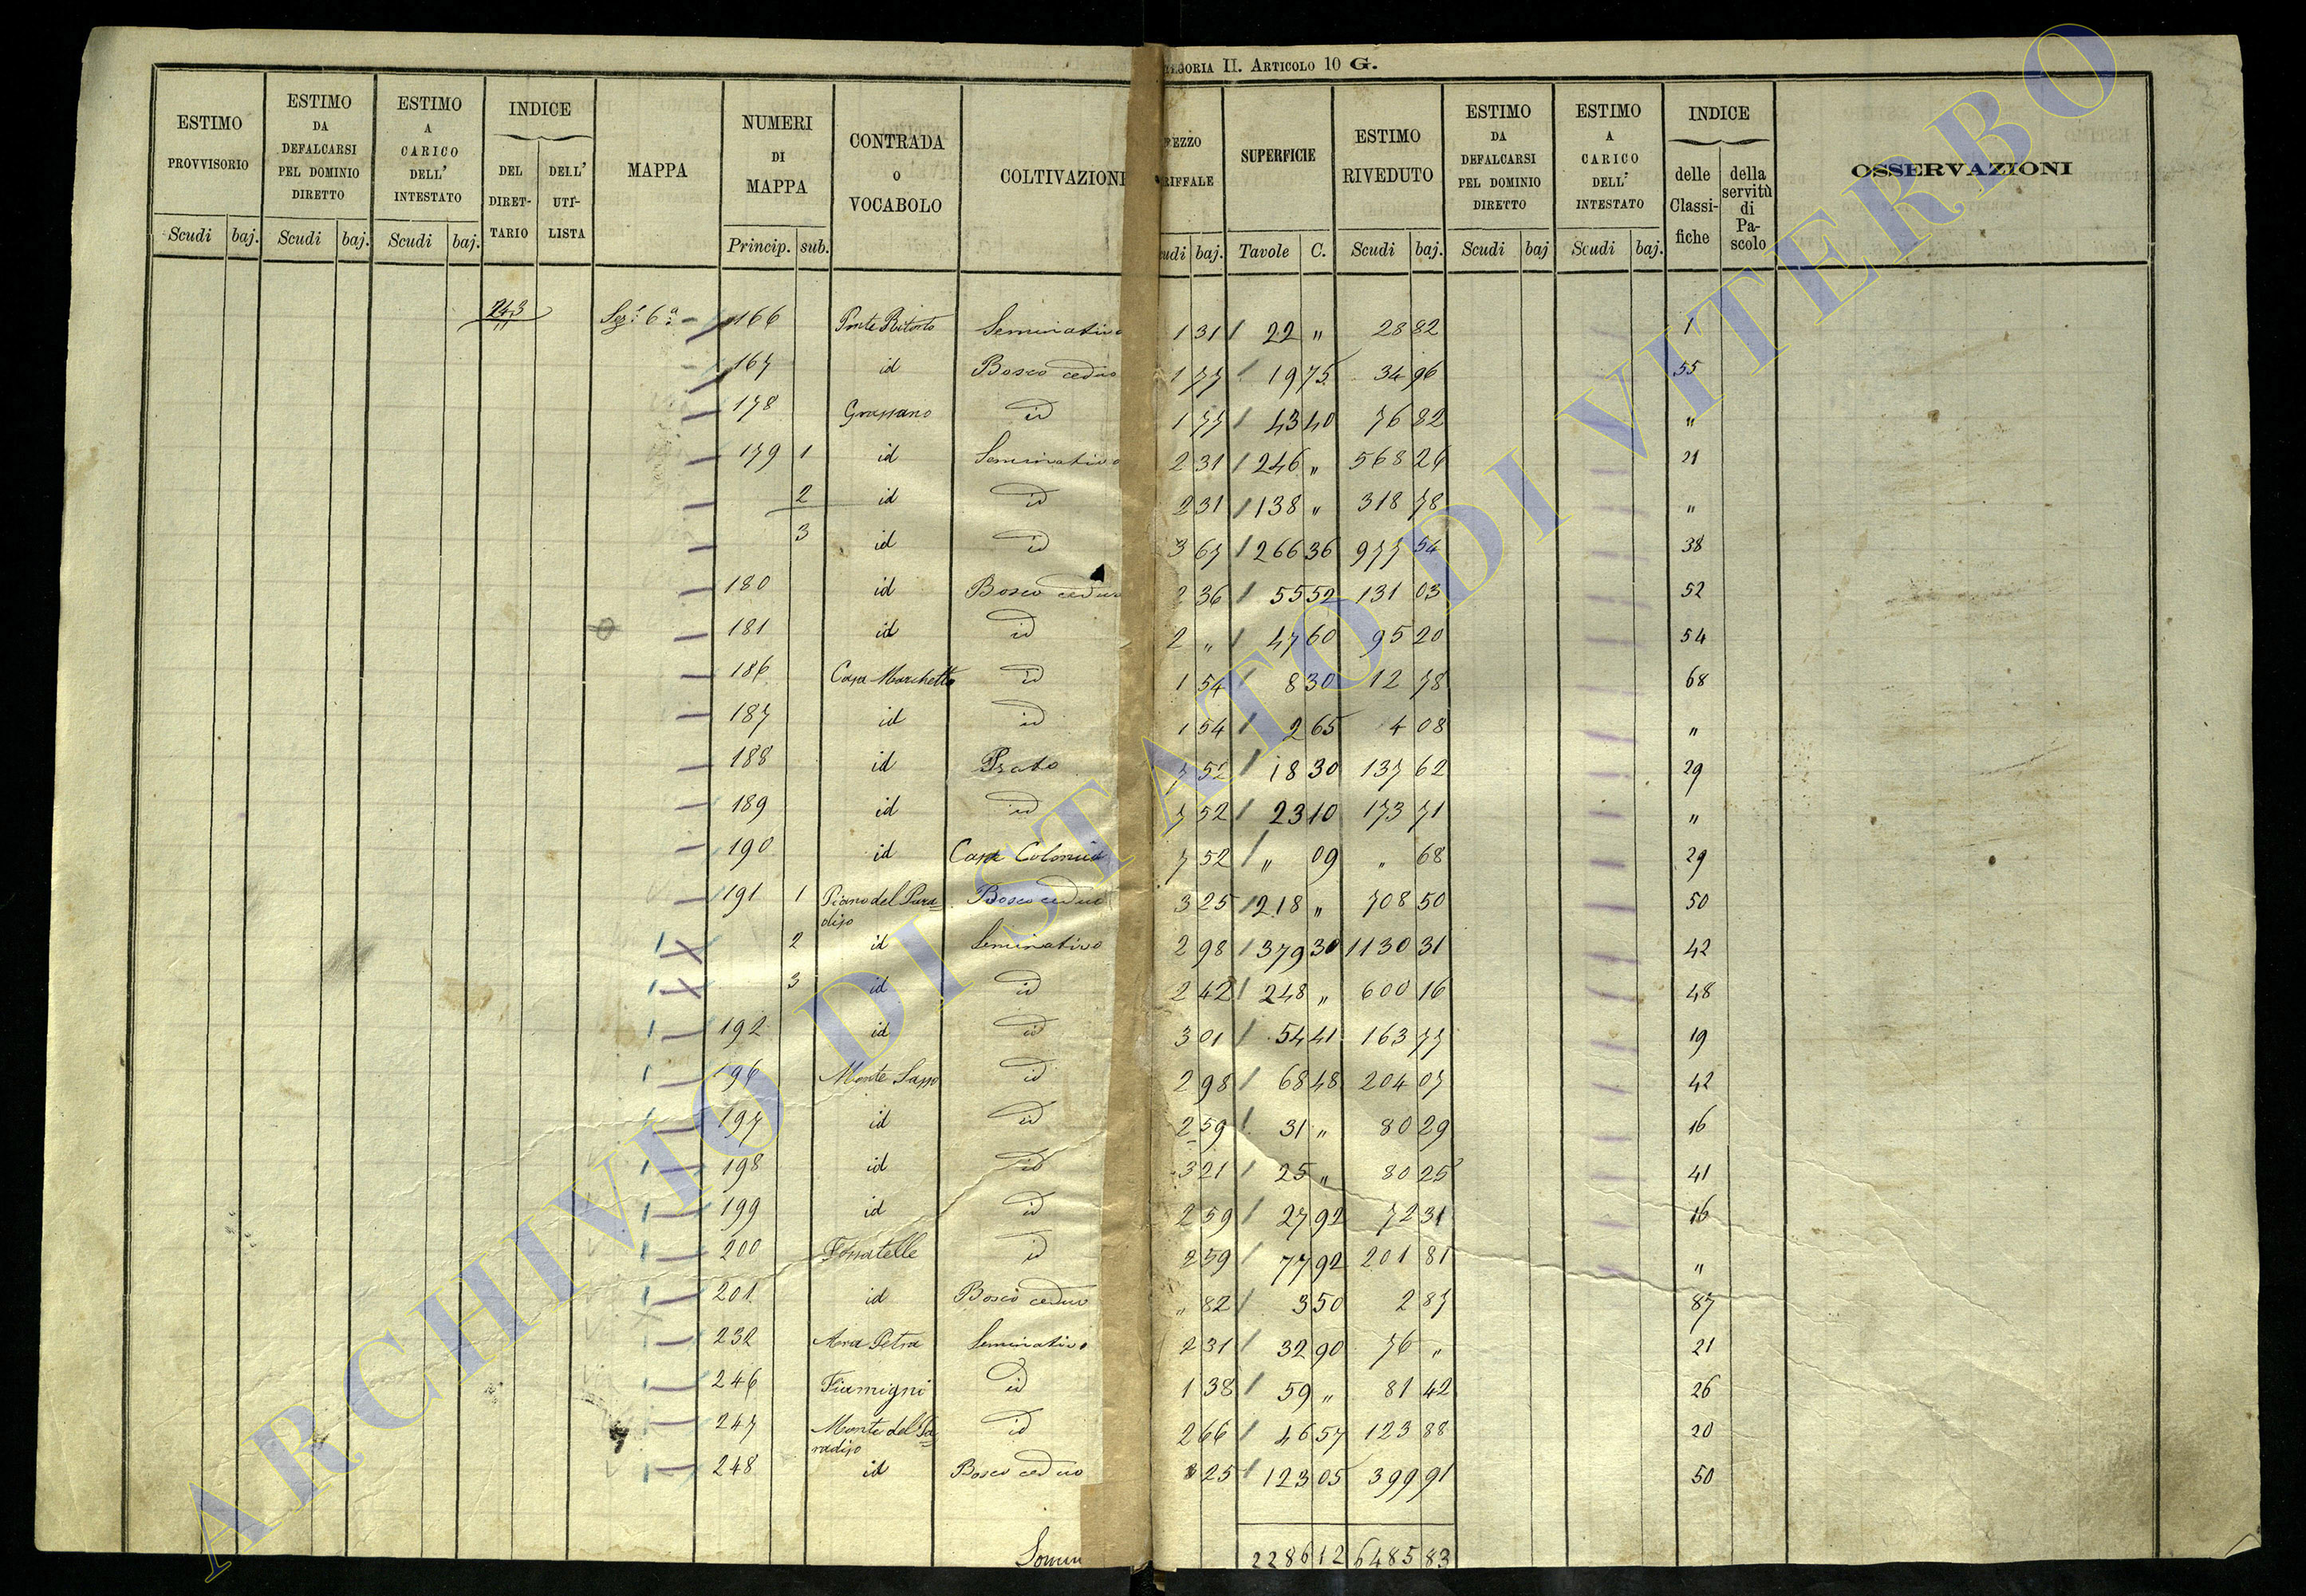 TEGORIA II. ARTICOLO 10 G.
ESTIMO PROVVISORIO Scudi baj.
ESTIMO DA DEFALCARSI PEL DOMINIO DIRETTO Scudi baj.
ESTIMO A CARICO DELL' INTESTATO Scudi baj.
INDICE DEL DIRET-TARIO DELL' UTI-LISTA
MAPPA
NUMERI DI MAPPA Princip. sub.
CONTRADA O VOCABOLO
COLTIVAZIONI
REZZO RIFFALE udi baj.
SUPERFICIE Tavole C.
ESTIMO RIVEDUTO Scudi baj.
ESTIMO DA DEFALCARSI PEL DOMINIO DIRETTO Scudi baj
ESTIMO A CARICO DELL' INTESTATO Scudi baj.
INDICE delle Classi-fiche della servitù di Pa-scolo
OSSERVAZIONI
243 Sez. 6a 166 Ponte Ritorto Seminativo 1 31 22 " 28 82 1
167 id Bosco ceduo 1 77 19 75 34 96 55
178 Grassano id 1 77 43 40 76 82 "
179 1 id Seminativo 2 31 246 " 568 26 21
2 id id 2 31 138 " 318 78 "
3 id id 3 67 266 36 977 54 38
180 id Bosco ceduo 2 36 55 52 131 03 52
181 id id 2 " 47 60 95 20 54
186 Casa Marchetto id 1 54 8 30 12 78 68
187 id id 1 54 2 65 4 08 "
188 id Prato 7 52 18 30 137 62 29
189 id id 7 52 23 10 173 71 "
190 id Casa Colonica 7 52 " 09 " 68 29
191 1 Piano del Para=diso Bosco ceduo 3 25 218 " 708 50 50
2 id Seminativo 2 98 379 30 1130 31 42
3 id id 2 42 248 " 600 16 48
192 id id 3 01 54 41 163 77 19
196 Monte Sasso id 2 98 68 48 204 07 42
197 id id 2 59 31 " 80 29 16
198 id id 3 21 25 " 80 25 41
199 id id 2 59 27 92 72 31 16
200 Fossatelle id 2 59 77 92 201 81 "
201 id Bosco ceduo " 82 3 50 2 87 87
232 Ara Petra Seminativo 2 31 32 90 76 " 21
246 Fiumigni id 1 38 59 " 81 42 26
247 Monte del Pa=radiso id 2 66 46 57 123 88 20
248 id Bosco ceduo 3 25 123 05 399 91 50
Somm 2286 12 6485 83
ARCHIVIO DI STATO DI VITERBO